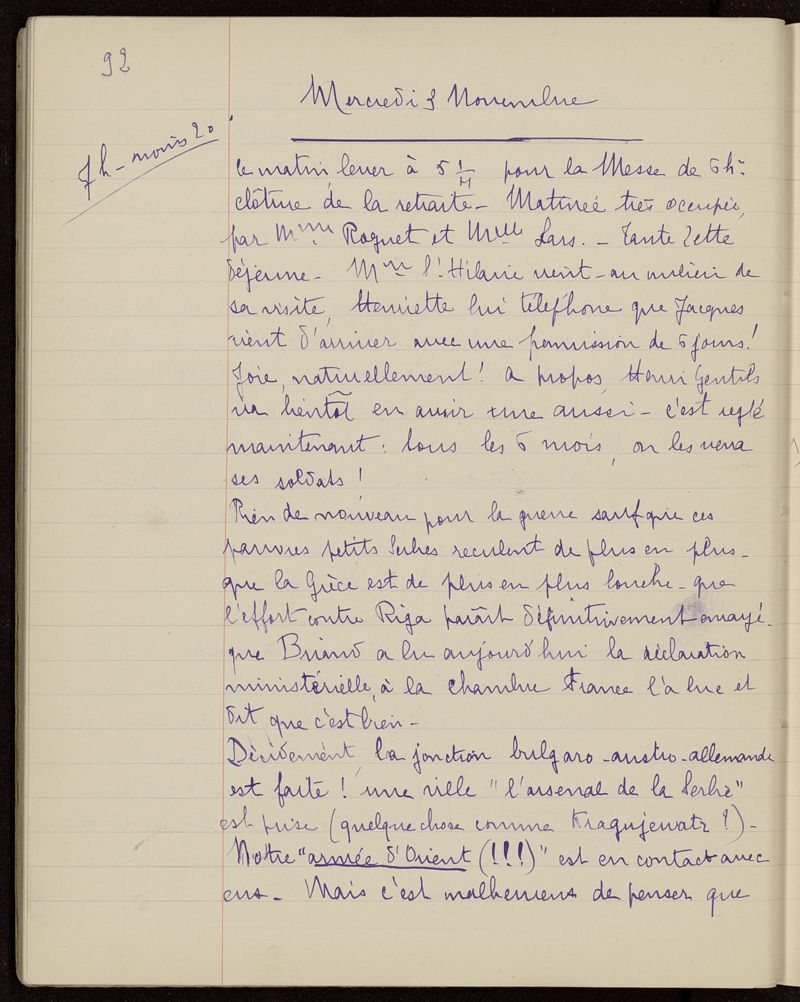 92
Mercredi 3 Novembre
7h - moins 20
Ce matin, lever à 5 1/4 pour la Messe de 6 h -
clôture de la retraite - Matinée très occupée,
par Mme Roguet et Mlle Lars. - Tante Zette
déjeune - Mme St Hilaire vient - au milieu de
sa visite, Henriette lui téléphone que Jacques
vient d'arriver avec une permission de 6 jours !
Joie, naturellement ! a propos, Henri Gentils
va bientôt en avoir une aussi - c'est reglé
maintenant : tous les 6 mois, on les verra
ses soldats !
Rien de nouveau pour la guerre sauf que ces
pauvres petits Serbes reculent de plus en plus -
que la Grèce est de plus en plus louche - que
l'effort contre Riga paraît définitivement enrayé -
que Briand a lu aujourd'hui la déclaration
ministérielle, à la chambre France l'a lue et
dit que c'est bien -
Décidement, la jonction bulgaro-austro-allemande
est faite ! une ville "l'arsenal de la Serbie"
est prise (quelque chose comme Kragujewatz ?) -
Notre "armée d'Orient (!!!)" est en contact avec
eux - Mais c'est malheureux de penser que